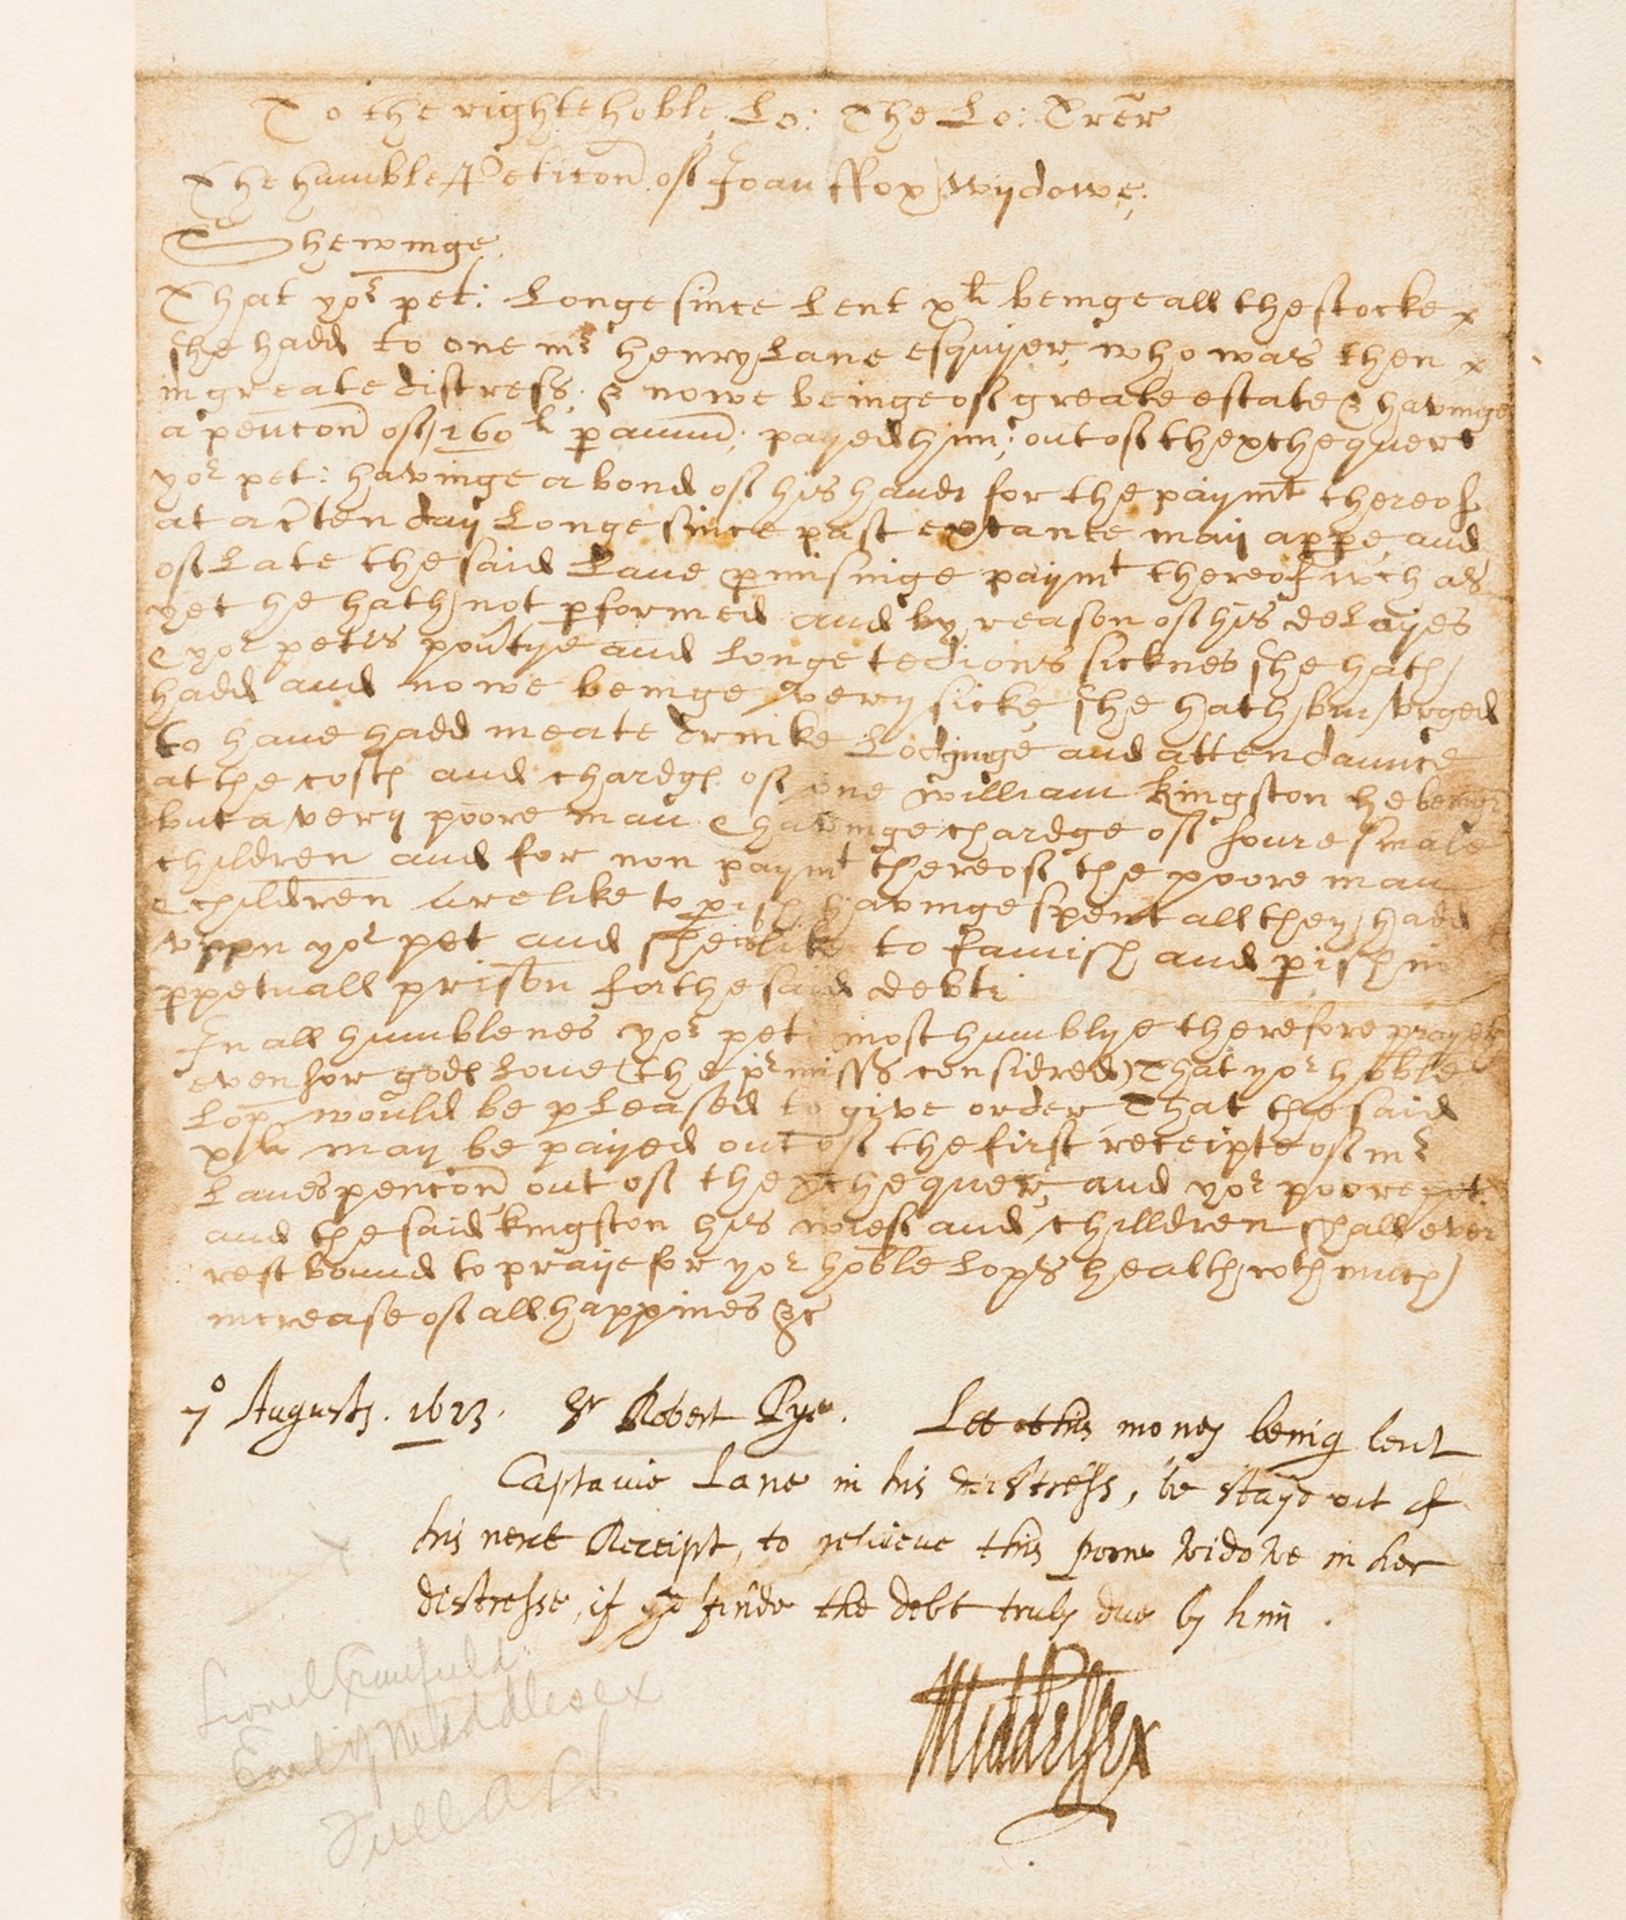 To the righte hoble Lo: The Lo: Trēr
The humble Peticon̄ of Joan ffox Wydowe:
Shewinge
That yor pet: Longe since Lent xli beinge all the stocke
she hadd to one mr Henry Lane esquyer, who was then
in greate distress, & nowe beinge of greate estate & havinge
a pencon̄ of 160li p annū: payed him: out of thexchequere
yor pet: havinge a bond of his hande for the paymt thereof
at a c̄ten day Longe since past extante may appe, and
of Late the said Lane pmisinge paymt thereof wch as
yet he hath not pformed and by reason of his delayes
& yor petrs pov̄tye and Longe tedious sicknes she hath
hadd and nowe beinge very sicke, she hath bin urged
to have hadd meate drinke Lodginge and attendaunce
at the costs and chardgs of one William Kingston he beinge
but a very poore man & havinge chardge of foure smale
children and for non paymt thereof the poore man
& children are like to pish havinge spent all they hadd
uppn yor pet and she is like to famish and pish in
ppetuall prison for the said debt
In all humblenes yor pet: most humblye therefore prayeth
even for gods Love (the prmisss considred) That yor hoble
Lop would be pleased to give order, That the said
xli may be payed out of the first receipte of mr
Lanes pencon̄ out of thexchequer, and yor poore pet:
and the said Kingston his wief and chilldren shall ever
rest bound to praye for yor hoble Lops health wth much
increase of all happines &c
7o Augusti. 1623. Sr Robert Pye. Let this money being lent
Captaine Lane in his distress, be stayd out of
his next Receipt, to relieve this poore widowe in her
distresse, if yo finde the debt truly due by him.
Middelsex
Lionel Cranfield
Earl of Middlesex
Full